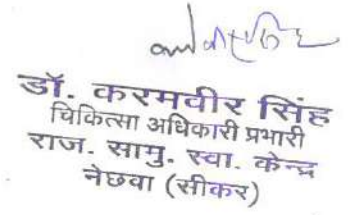 डॉ. करमवीर सिंह
चिकित्सा अधिकारी प्रभारी
राज. सामु. स्वा. केन्द्र
नेछवा (सीकर)